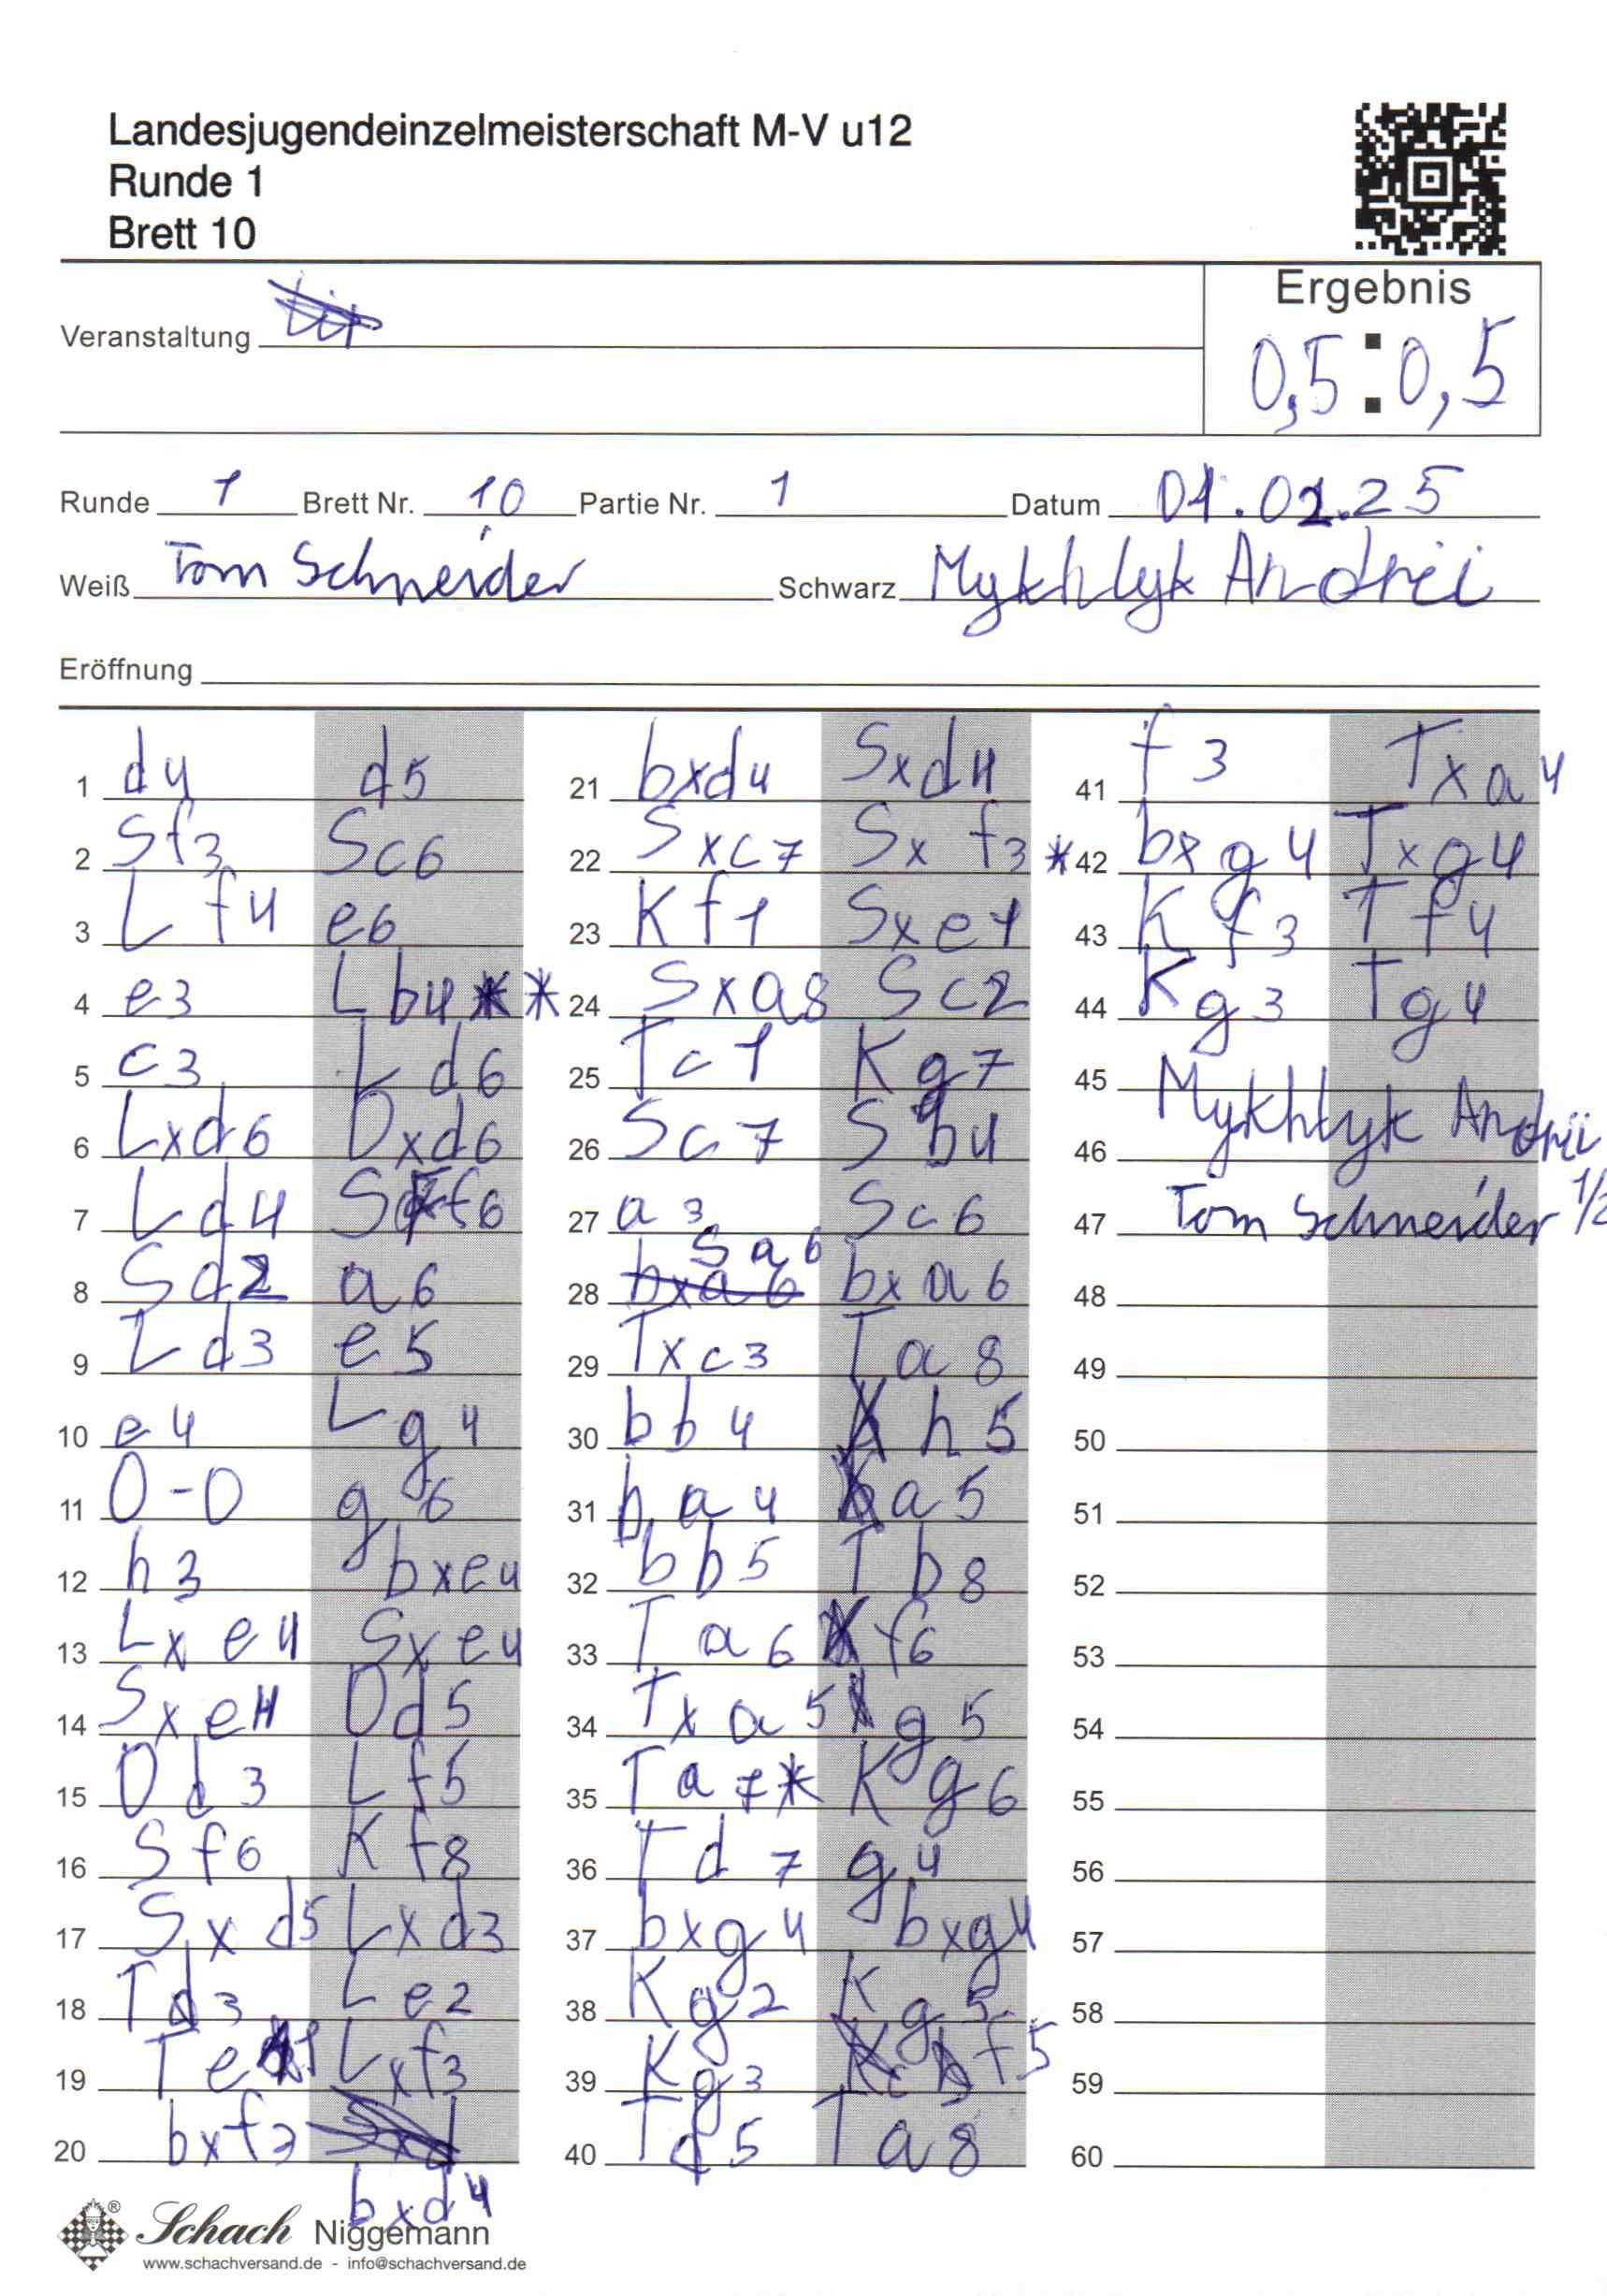 Landesjugendeinzelmeisterschaft M-V u12
Runde 1
Brett 10
Ergebnis
0,5 : 0,5
Veranstaltung
Runde 1 Brett Nr. 10 Partie Nr. 1 Datum 01.02.25
Weiß Tom Schneider Schwarz Mykhlyk Andrii
Eröffnung
1 d4 d5
2 Sf3 Sc6
3 Lf4 e6
4 e3 Lb4 * *
5 c3 Ld6
6 Lxd6 Dxd6
7 Ld4 Sf6
8 Sd2 a6
9 Ld3 e5
10 e4 Lg4
11 0-0 g6
12 h3 bxe4
13 Lxe4 Sxe4
14 Sxe4 Dd5
15 Dd3 Lf5
16 Sf6 Kf8
17 Sxd5 Lxd3
18 Td3 Le2
19 Te1 Lxf3
20 bxf3 bxd4
21 bxd4 Sxd4
22 Sxc7 Sxf3 *
23 Kf1 Sxe1
24 Sxa8 Sc2
25 Tc1 Kg7
26 Sc7 Sb4
27 a3 Sc6
28 Sa6 bxa6
29 Txc3 Ta8
30 bb4 h5
31 ba4 a5
32 bb5 Tb8
33 Ta6 f6
34 Txa5 g5
35 Ta7* Kg6
36 Td7 g4
37 bxg4 bxg4
38 Kg2 Kg5
39 Kg3 f5
40 Td5 Ta8
41 f3 Txa4
42 bxg4 Txg4
43 Kf3 Tf4
44 Kg3 Tg4
45 Mykhlyk Andrii
46
47 Tom Schneider 1/2
48
49
50
51
52
53
54
55
56
57
58
59
60
Schach Niggemann
®
www.schachversand.de - info@schachversand.de